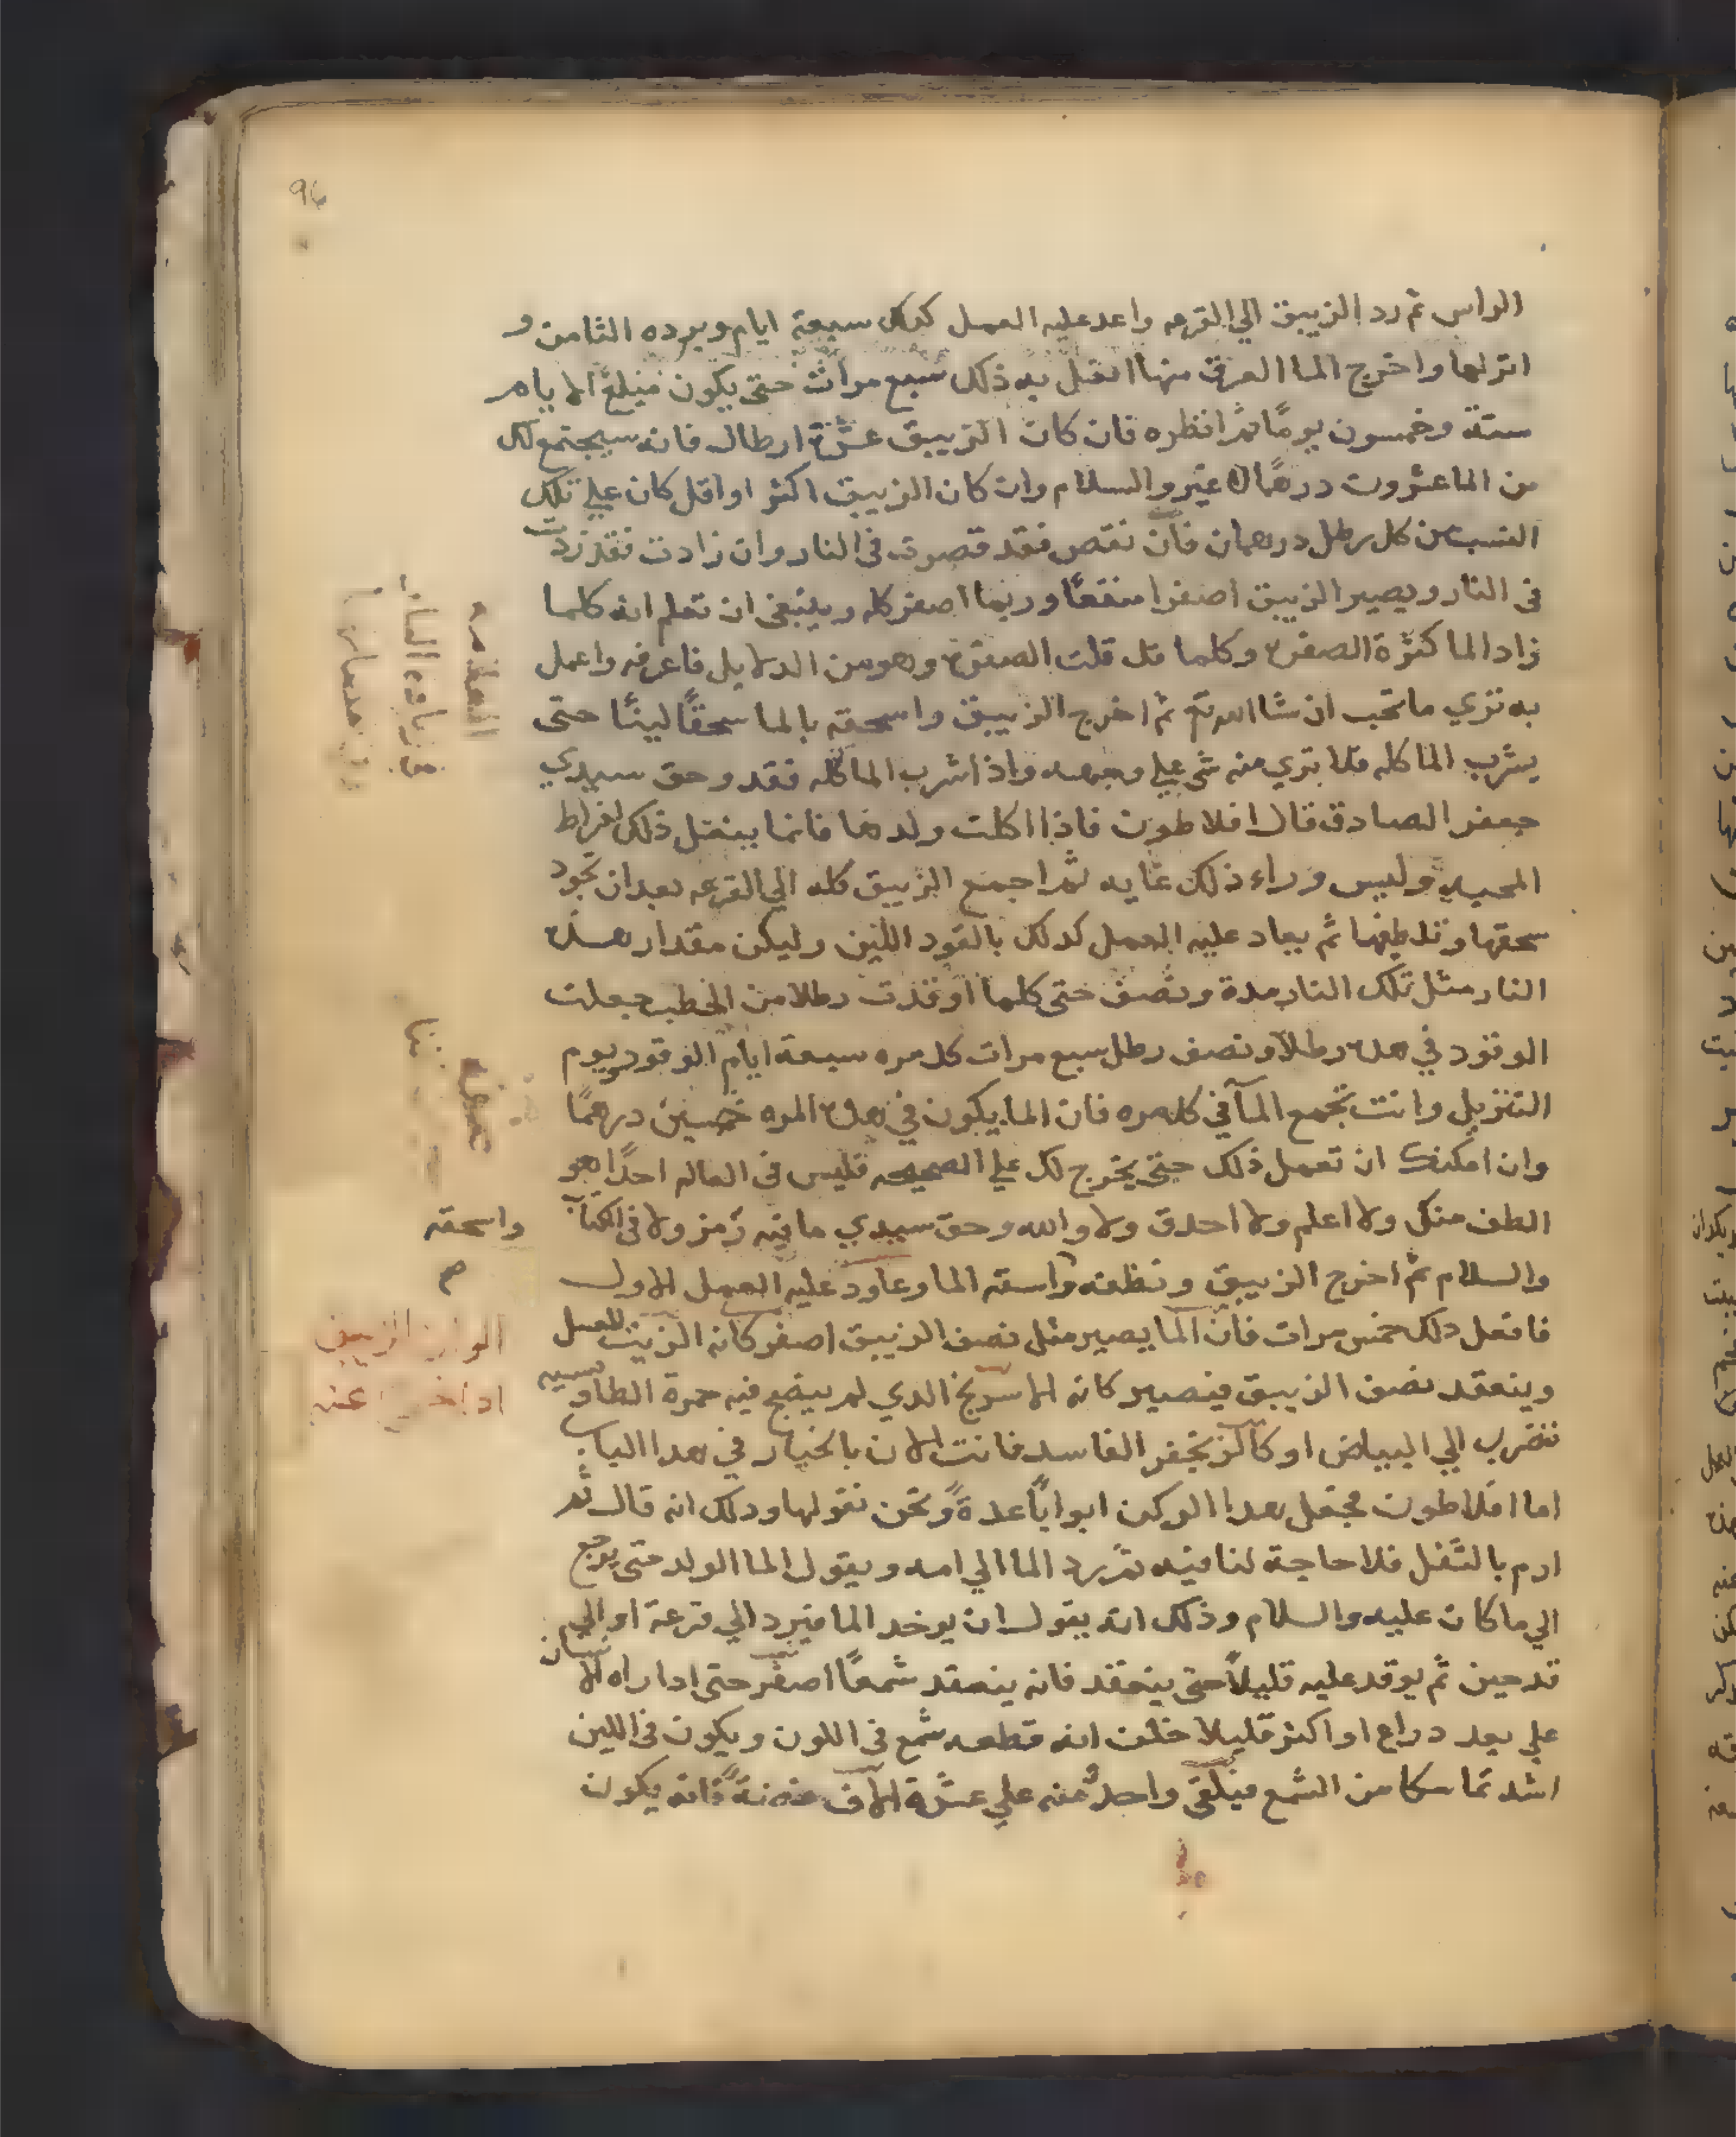 96
الراس ثم رد الزيبق الي القرعه واعد عليه العمل كدلك سبعة ايام وبرده الثامن و
انزلها واخرج الما العرق منها افعل به ذلك سبع مرات حتى يكون مبلغ الايام
ستة وخمسون يومًا ثم انظره فان كان الزيبق عشرة ارطال فانه سيجتمع لك
من الما عشرون درهمًا لا غير والسلام وان كان الزيبق اكثر او اقل كان علي تلك
النسب من كل رطل درهمان فان نقص فقد قصرت في النار وان زادت فقد زدت
في النار ويصير الزيبق اصفرا منقعًا وربما اصفر كله وينبغي ان تعلم انه كلما
زاد الما كثرة الصفرة وكلما قل قلت الصفرة وهو من الدلايل فاعرفه واعمل
به تري ما تحب ان شا الله تع ثم اخرج الزيبق واسحقه بالما سحقًا لينًا حتى
يشرب الما كله فلا تري منه شي علي وجهه واذا شرب الما كله فقد وحق سيدي
جعفر الصادق قال افلاطون فاذا اكلت ولدها فانما بفعل ذلك لفراط
المحبه وليس وراء ذلك غايه ثم اجمع الزيبق كله الي القرعه بعد ان تجود
سحقها وتلطيفها ثم يعاد عليه العمل كدلك بالقود اللين وليكن مقدار هذه
النار مثل تلك النار مدة ونصف حتى كلما اوقدت رطلا من الحطب جعلت
الوقود في هده رطلاً ونصف رطل سبع مرات كل مره سبعة ايام الوقود ويوم
التنزيل وانت تجمع الما في كل مره فان الما يكون في هده المره خمسين درهمًا
وان امكنك ان تعمل ذلك حتى يخرج لك علي الصحيحه فليس في العالم احدًا هو
الطف منك ولا اعلم ولا احدق ولا والله وحق سيدي ما فيه رمز ولا في الكتاب
والسلام ثم اخرج الزيبق ونظفه واسقه الما وعاود عليه العمل الاول
واسحقه
فافعل دلك خمس مرات فان الما يصير مثل نصف الزيبق اصفر كانه الزيت للعسل
وينعقد نصف الزيبق فيصير كانه الاسرنج الدي لم ينضج فيه حمرة الطاوسيه
تضرب الي البياض او كالزنجفر الفاسد فانت الان بالخيار في هدا الباب
اما افلاطون فجعل هدا الركن ابوابًا عدة ونحن نقولها ودلك انه قال ثم
ارم بالثفل فلا حاجة لنا فيه ثم يرد الما الي امه ويقول الما الولد حتى يرجع
الي ما كان عليه والسلام وذلك انه يقول ان يوخد الما فيرد الي قرعة او الي
قدحين ثم يوقد عليه قليلاً حتى ينعقد فانه ينعقد شمعًا اصفر حتى ادا راه الانسان
علي بعد دراع او اكثر قليلا خلت انه قطعه شمع في اللون ويكون في اللين
اشد تماسكا من الشمع فيلقى واحد منه علي عشرة الاف فانه يكون